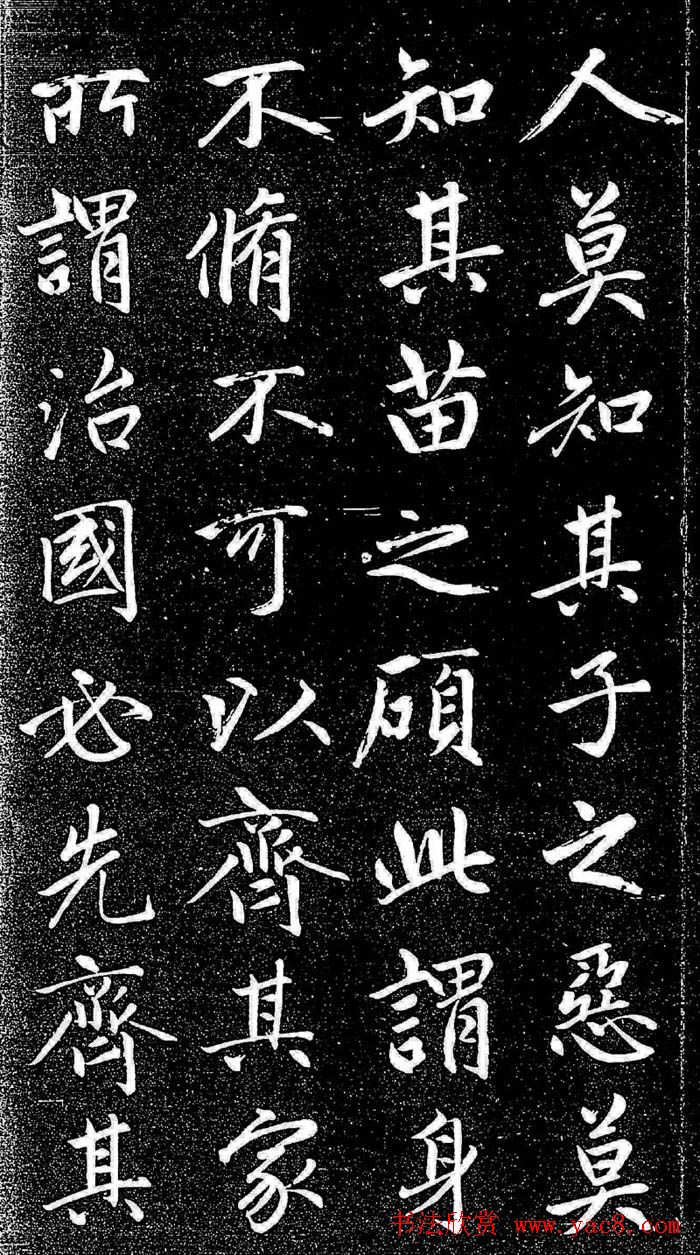 人莫知其子之惡莫
知其苗之碩此謂身
不脩不可以齊其家
所謂治國必先齊其
书法欣赏 www.yac8.com